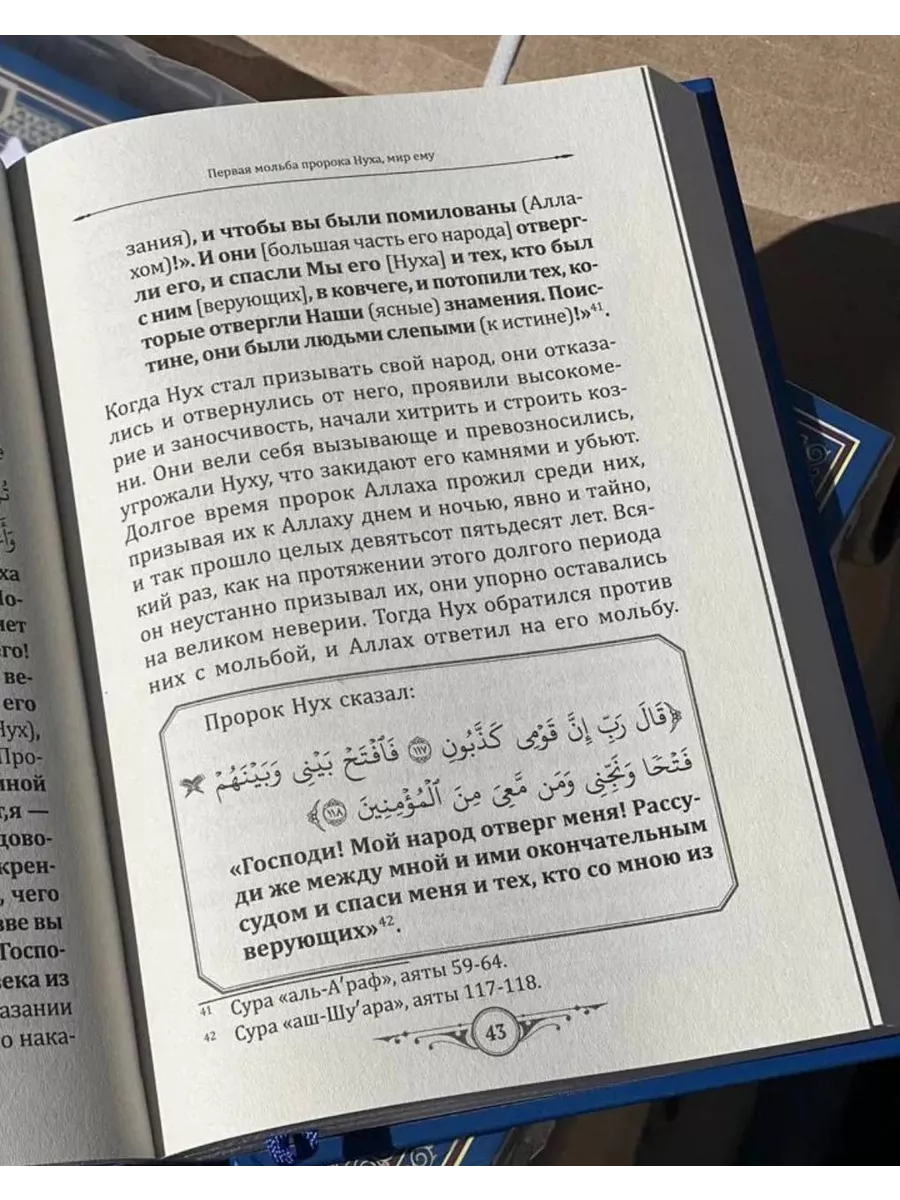 те
ха
По-
нет
его!
ве-
его
Нух),
Про-
мной
т,я —
дово-
крен-
, чего
зве вы
Госпо-
века из
азании
о нака-
Первая мольба пророка Нуха, мир ему
зания), и чтобы вы были помилованы (Алла-
хом)!». И они [большая часть его народа] отверг-
ли его, и спасли Мы его [Нуха] и тех, кто был
с ним [верующих], в ковчеге, и потопили тех, ко-
торые отвергли Наши (ясные) знамения. Поис-
тине, они были людьми слепыми (к истине)!»41.
Когда Нух стал призывать свой народ, они отказа-
лись и отвернулись от него, проявили высокоме-
рие и заносчивость, начали хитрить и строить коз-
ни. Они вели себя вызывающе и превозносились,
угрожали Нуху, что закидают его камнями и убьют.
Долгое время пророк Аллаха прожил среди них,
призывая их к Аллаху днем и ночью, явно и тайно,
и так прошло целых девятьсот пятьдесят лет. Вся-
кий раз, как на протяжении этого долгого периода
он неустанно призывал их, они упорно оставались
на великом неверии. Тогда Нух обратился против
них с мольбой, и Аллах ответил на его мольбу.
Пророк Нух сказал:
﴿قَالَ رَبِّ إِنَّ قَوۡمِي كَذَّبُونِ ١١٧ فَٱفۡتَحۡ بَيۡنِي وَبَيۡنَهُمۡ
فَتۡحٗا وَنَجِّنِي وَمَن مَّعِيَ مِنَ ٱلۡمُؤۡمِنِينَ ١١٨﴾
«Господи! Мой народ отверг меня! Рассу-
ди же между мной и ими окончательным
судом и спаси меня и тех, кто со мною из
верующих»42.
41 Сура «аль-А'раф», аяты 59-64.
42 Сура «аш-Шу'ара», аяты 117-118.
43